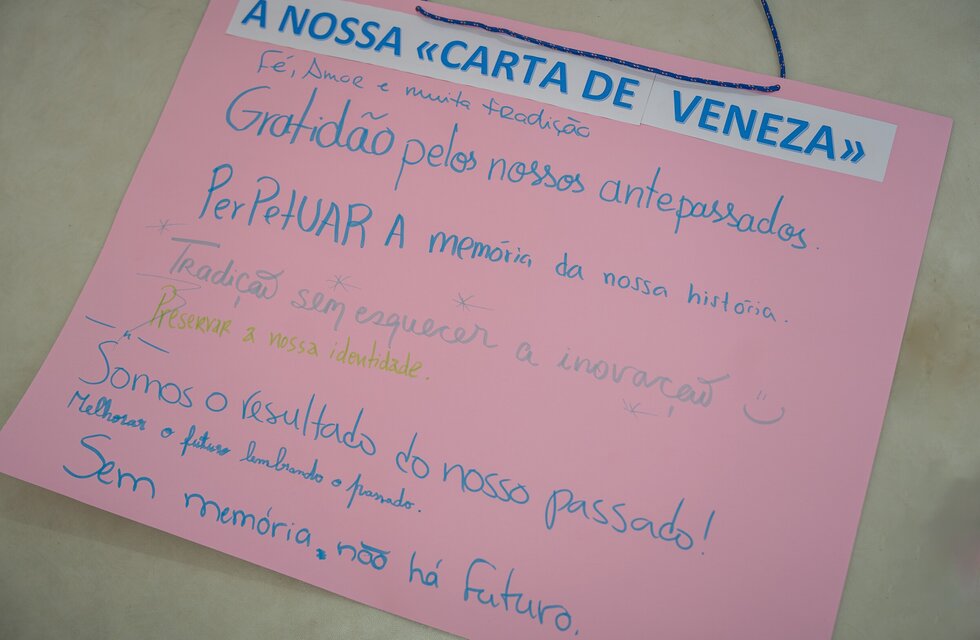 A NOSSA «CARTA DE VENEZA»
Fé, Amor e muita tradição
Gratidão pelos nossos antepassados.
PerPetUAR A memória da nossa história.
Tradição sem esquecer a inovação
Preservar a nossa identidade.
Somos o resultado do nosso passado!
Melhorar o futuro lembrando o passado.
Sem memória, não há Futuro.